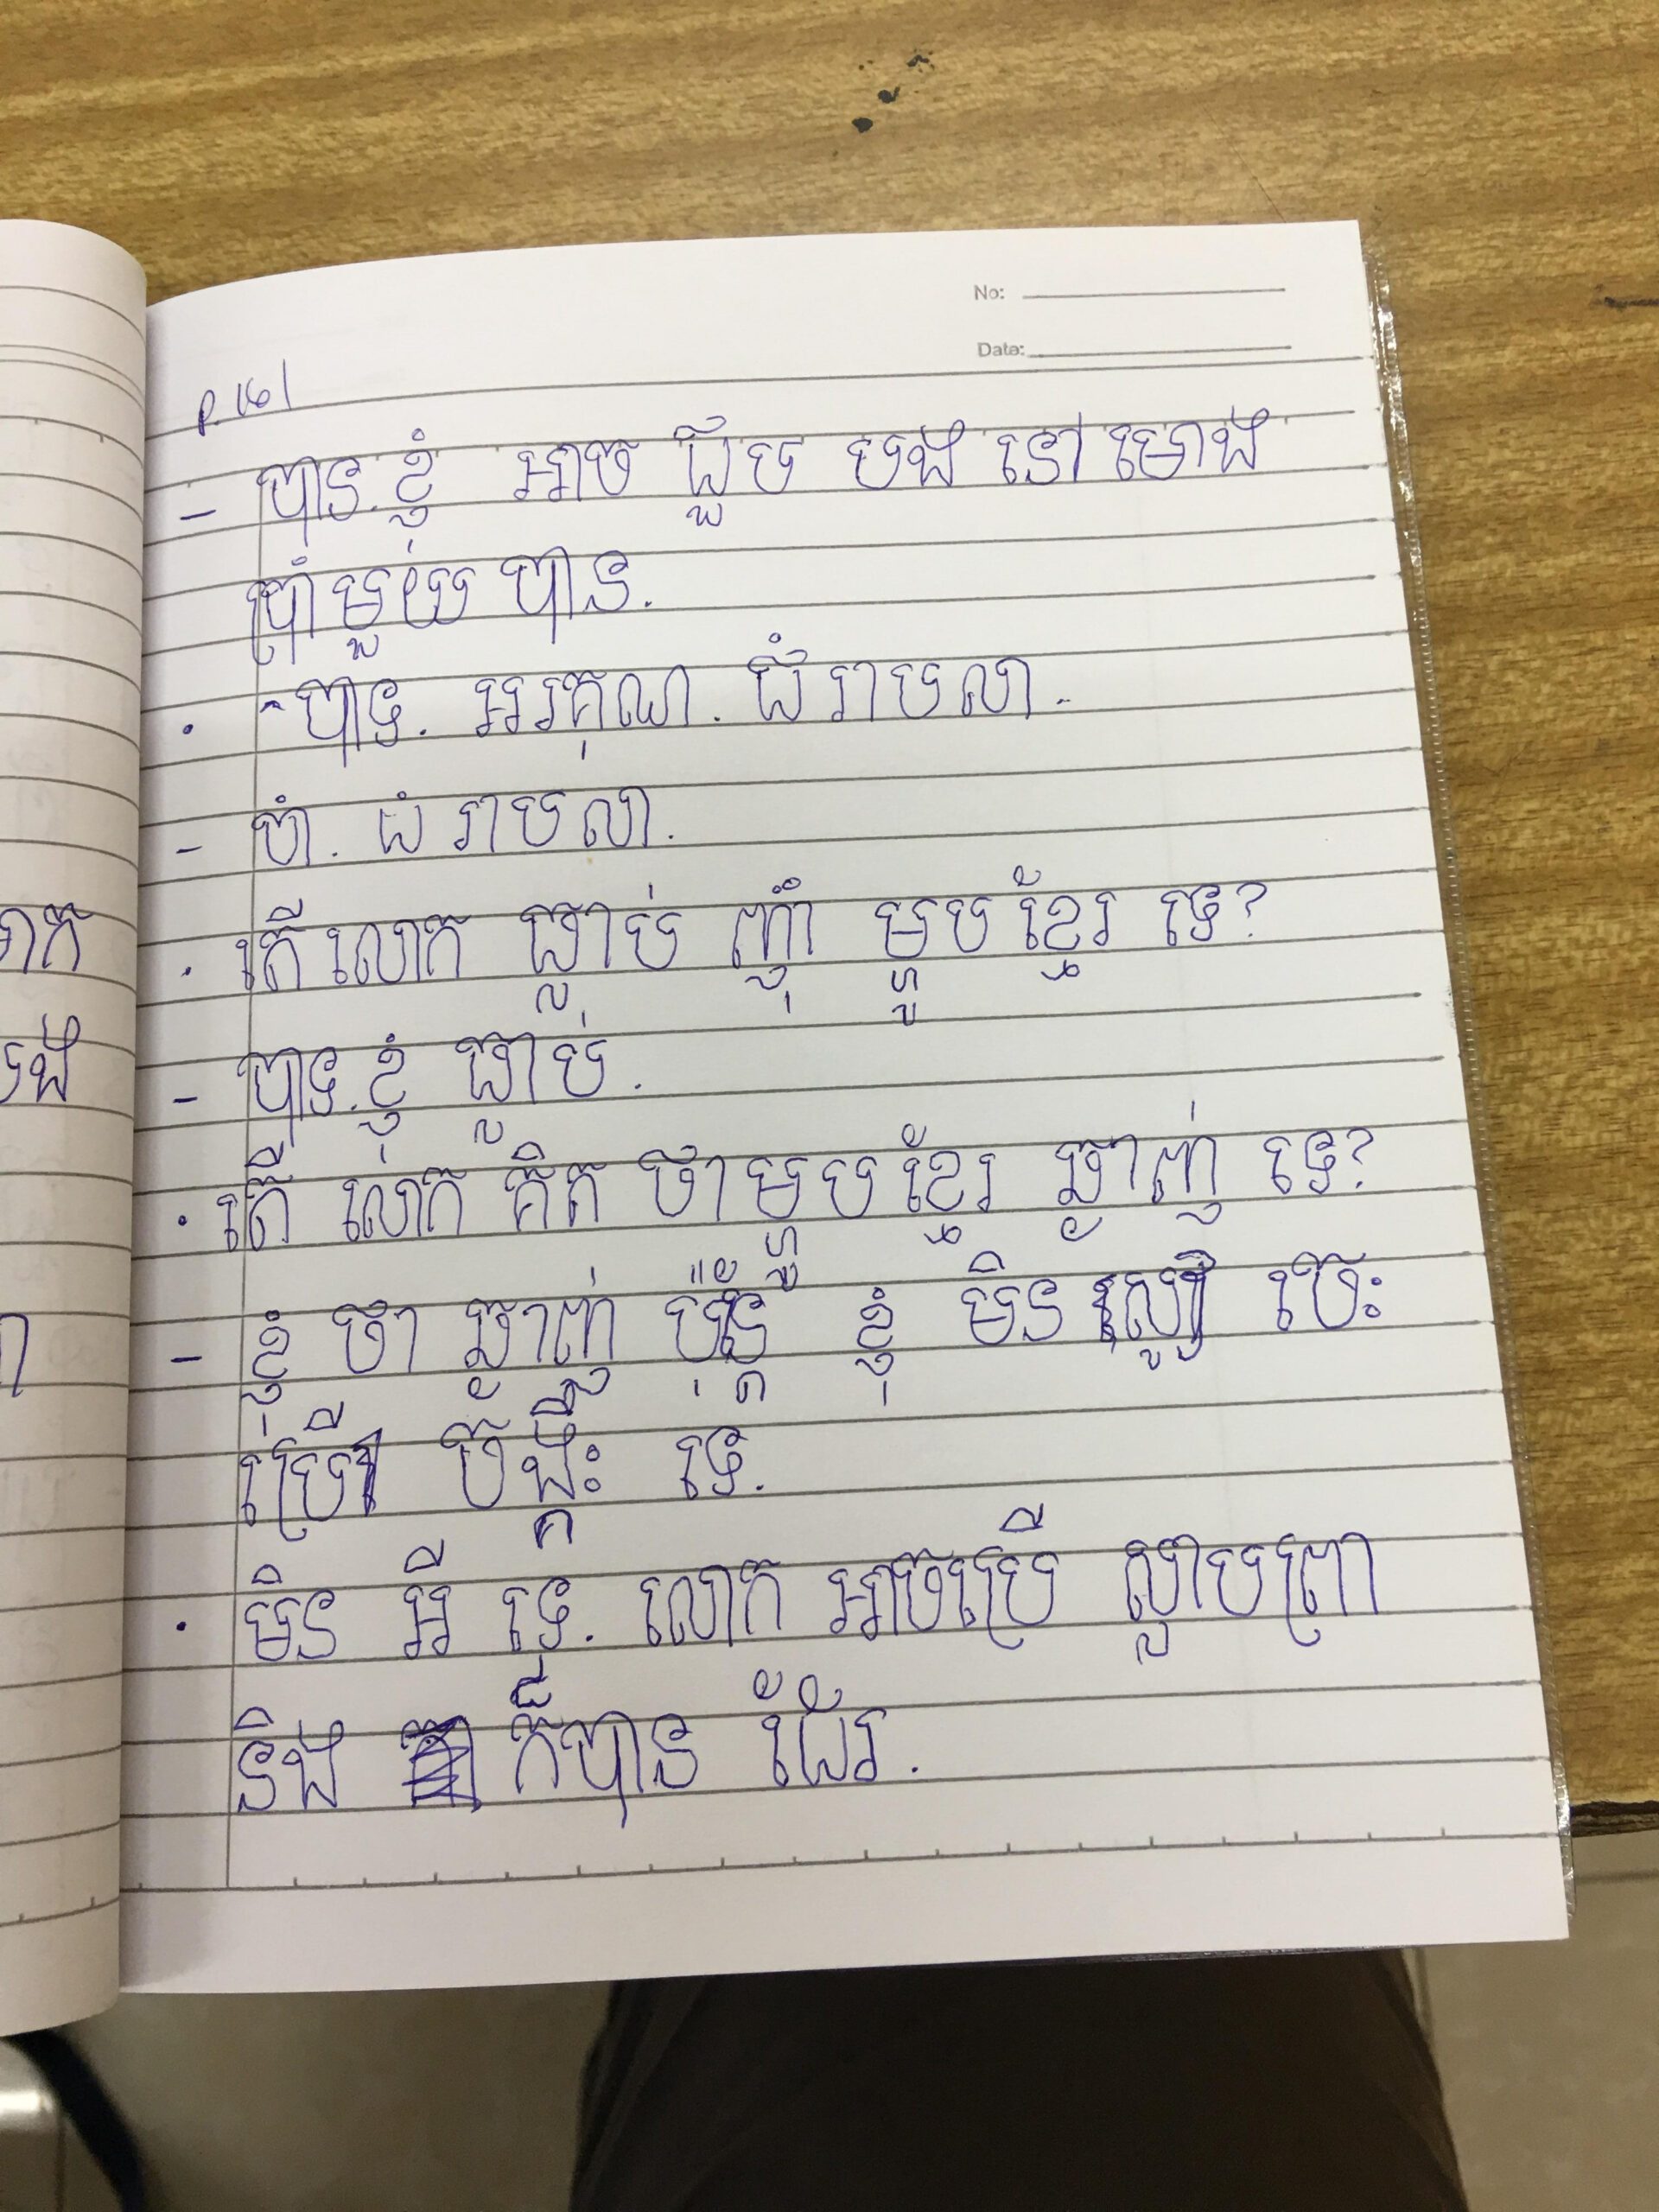 No:
Date:
p. 161
- បាន. ខ្ញុំ អាច ជួប បង នៅ ម៉ោង
ប្រាំមួយ បាន.
. - បាទ. អរគុណ. ជំរាបលា.
- ចាំ. ជំរាបលា.
. តើ លោក ធ្លាប់ ញ៉ាំ ម្ហូបខ្មែរ ទេ?
- បាទ. ខ្ញុំ ធ្លាប់.
. តើ លោក គិត ថា ម្ហូបខ្មែរ ឆ្ងាញ់ ទេ?
- ខ្ញុំ ថា ឆ្ងាញ់ ប៉ុន្តែ ខ្ញុំ មិន ចេះ
ប្រើ ចង្កឹះ ទេ.
. មិន អី ទេ. លោក អាចប្រើ ស្លាបព្រា
និង ក៏បាន ដែរ.